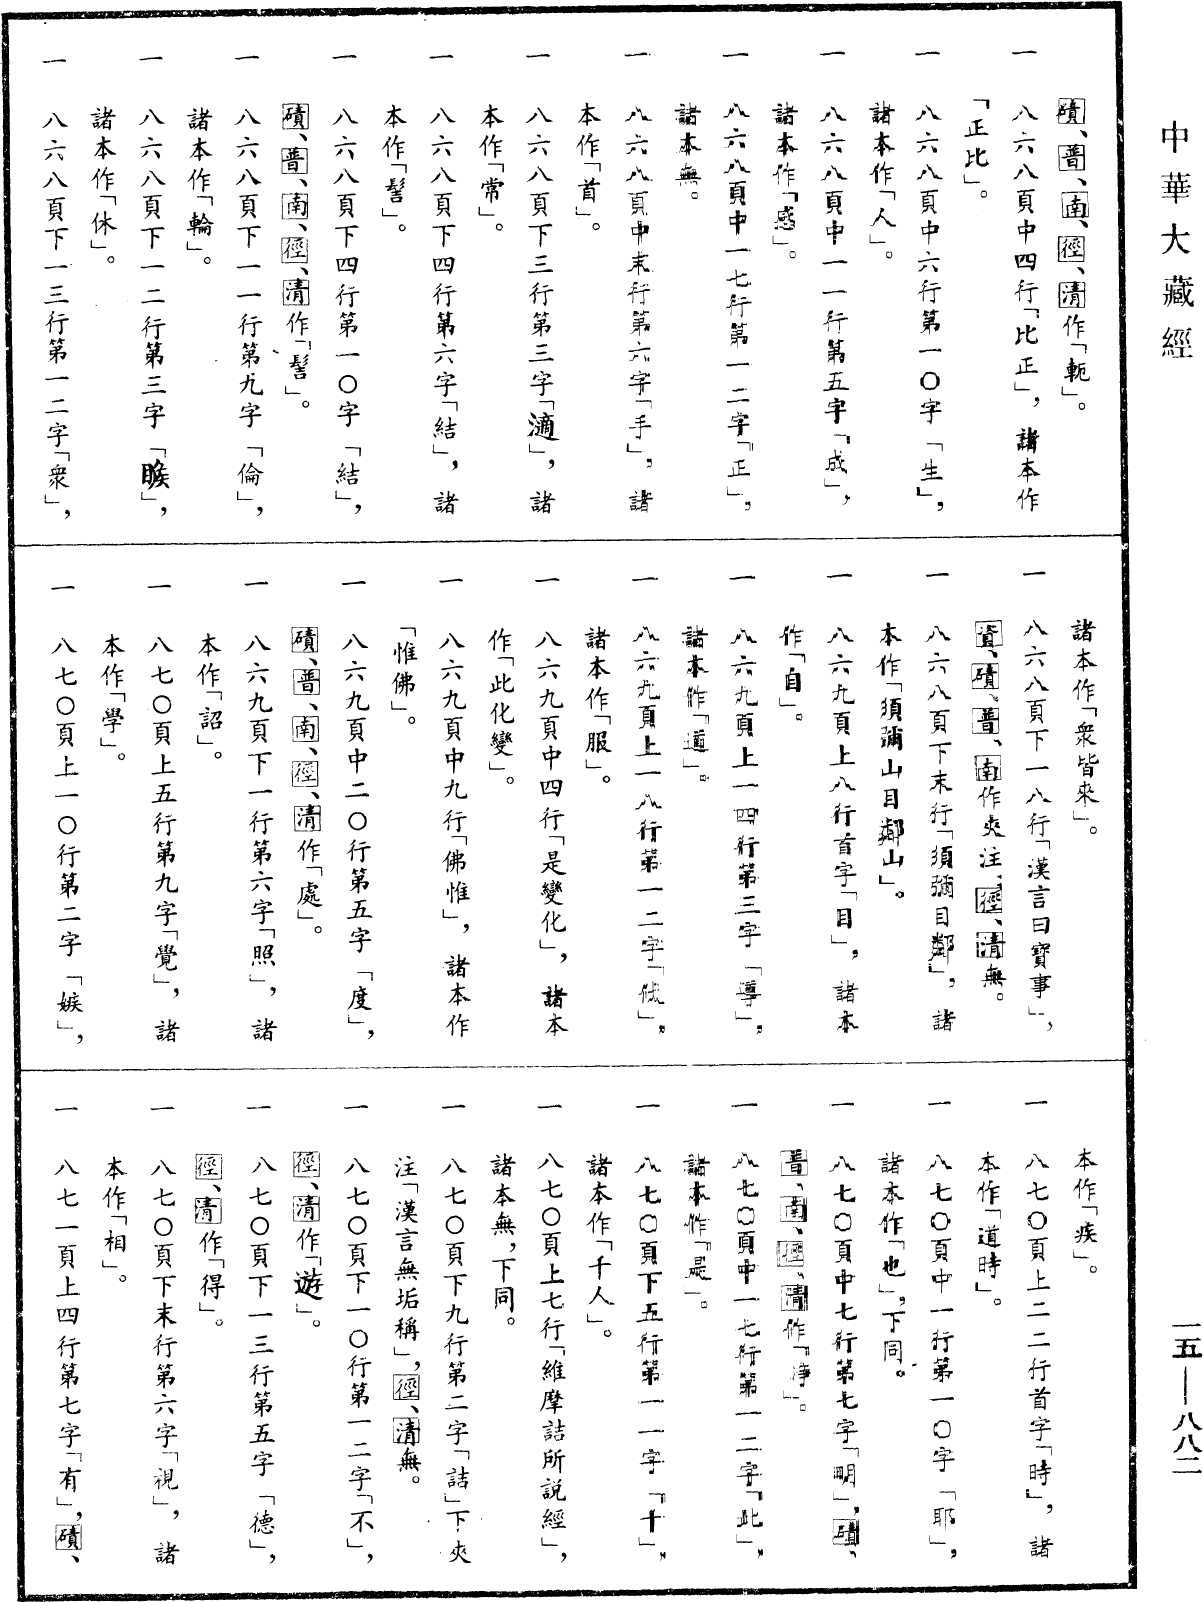 中華大藏經
磧、普、南、徑、清作「軛」。
一 八六八頁中四行「比正」，諸本作
「正比」。
一 八六八頁中六行第一〇字「生」，
諸本作「人」。
一 八六八頁中一一行第五字「成」，
諸本作「感」。
一 八六八頁中一七行第一二字「正」，
諸本無。
一 八六八頁中末行第六字「手」，諸
本作「首」。
一 八六八頁下三行第三字「適」，諸
本作「常」。
一 八六八頁下四行第六字「結」，諸
本作「髻」。
一 八六八頁下四行第一〇字「結」，
磧、普、南、徑、清作「髻」。
一 八六八頁下一一行第九字「倫」，
諸本作「輪」。
一 八六八頁下一二行第三字「睺」，
諸本作「休」。
一 八六八頁下一三行第一二字「衆」，
諸本作「衆皆來」。
一 八六八頁下一八行「漢言曰寶事」，
資、磧、普、南作夾注，徑、清無。
一 八六八頁下末行「須彌目鄰」，諸
本作「須彌山目鄰山」。
一 八六九頁上八行首字「目」，諸本
作「自」。
一 八六九頁上一四行第三字「導」，
諸本作「道」。
一 八六九頁上一八行第一二字「伏」，
諸本作「服」。
一 八六九頁中四行「是變化」，諸本
作「此化變」。
一 八六九頁中九行「佛惟」，諸本作
「惟佛」。
一 八六九頁中二〇行第五字「度」，
磧、普、南、徑、清作「處」。
一 八六九頁下一行第六字「照」，諸
本作「詔」。
一 八七〇頁上五行第九字「覺」，諸
本作「學」。
一 八七〇頁上一〇行第二字「嫉」，
本作「疾」。
一 八七〇頁上二二行首字「時」，諸
本作「道時」。
一 八七〇頁中一行第一〇字「耶」，
諸本作「也」，下同。
一 八七〇頁中七行第七字「明」，磧、
普、南、徑、清作「淨」。
一 八七〇頁中一七行第一二字「此」，
諸本作「是」。
一 八七〇頁下五行第一一字「十」，
諸本作「千人」。
一 八七〇頁上七行「維摩詰所説經」，
諸本無，下同。
一 八七〇頁下九行第二字「詰」下夾
注「漢言無垢稱」，徑、清無。
一 八七〇頁下一〇行第一二字「不」，
徑、清作「遊」。
一 八七〇頁下一三行第五字「德」，
徑、清作「得」。
一 八七〇頁下末行第六字「視」，諸
本作「相」。
一 八七一頁上四行第七字「有」，磧、
一五—八八二